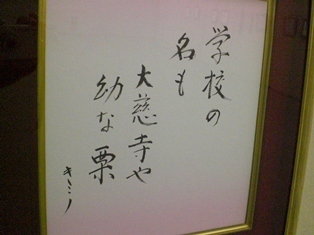 学校の
名も
大慈寺や
幼な栗
きミノ